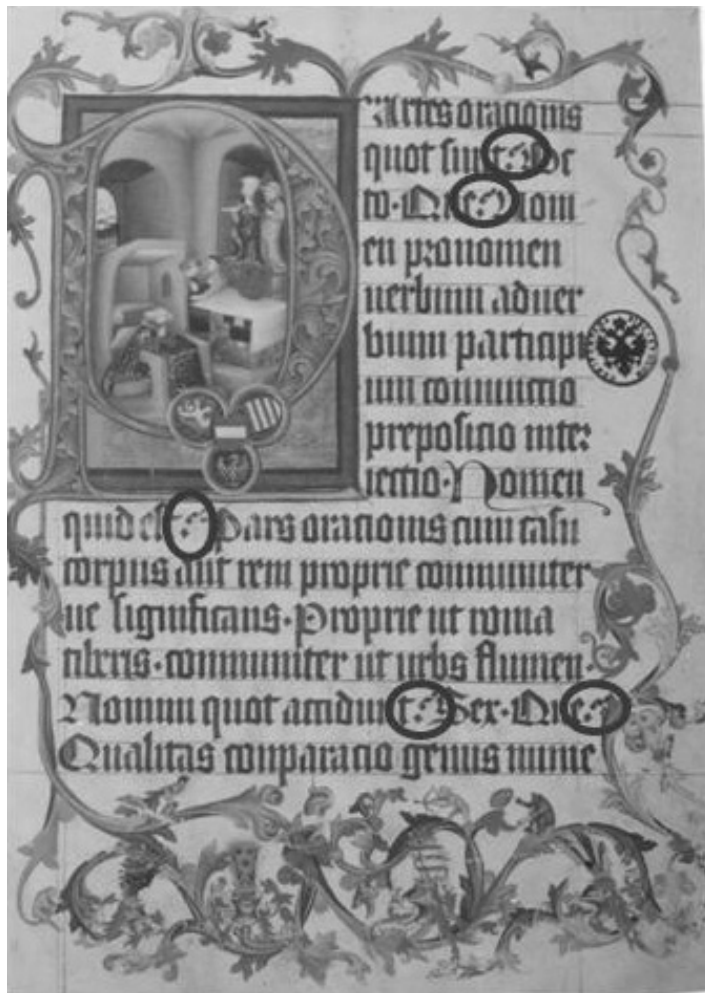 Partes orationis
quot sunt? Oc
to. Que? Nom
en pronomen
uerbum aduer
bium participi
um coniunctio
prepositio inter
iectio. Nomen
quid est? Pars orationis cum casu
corpus aut rem proprie communiter
ue significans. Proprie ut roma
tiberis. communiter ut urbs flumen.
Nomini quot accidunt? Sex. Que?
Qualitas conparacio genus nume